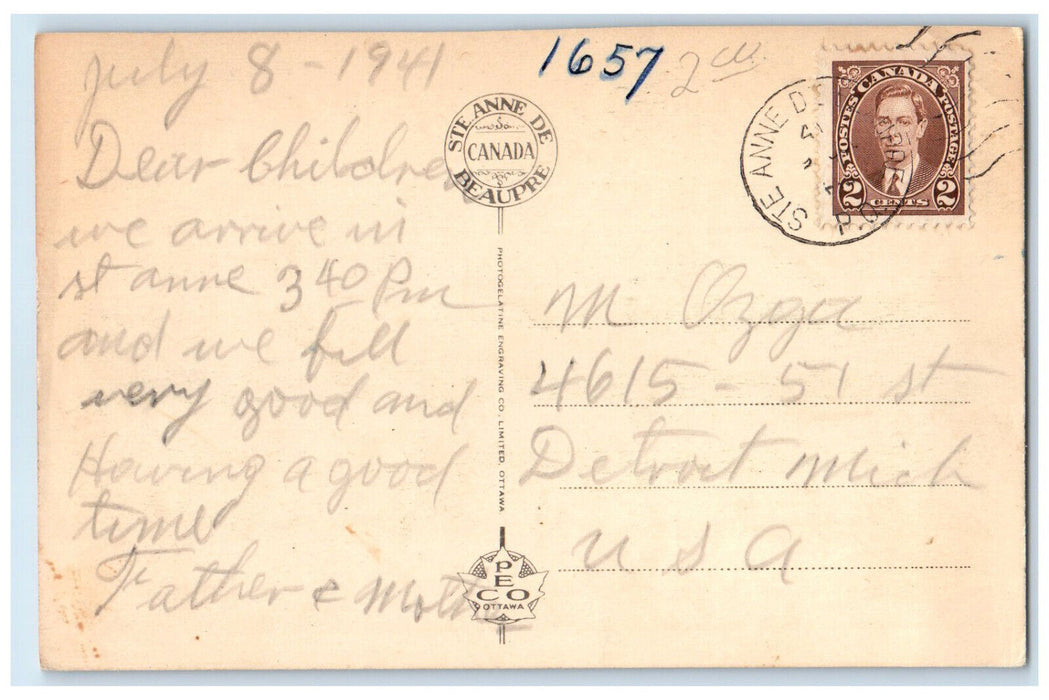 July 8 - 1941
Dear Children
we arrive in
st anne 3 40 Pm
and we fell
very good and
Having a good
time
Father & Mother
1657
STE ANNE DE
CANADA
BEAUPRÉ
PHOTOGELATINE ENGRAVING CO., LIMITED, OTTAWA
PECO
OTTAWA
STE ANNE D
P.Q
POSTES CANADA POSTAGE
2 CENTS 2
M Ozga
4615 - 51 st
Detroit Mich
U S A